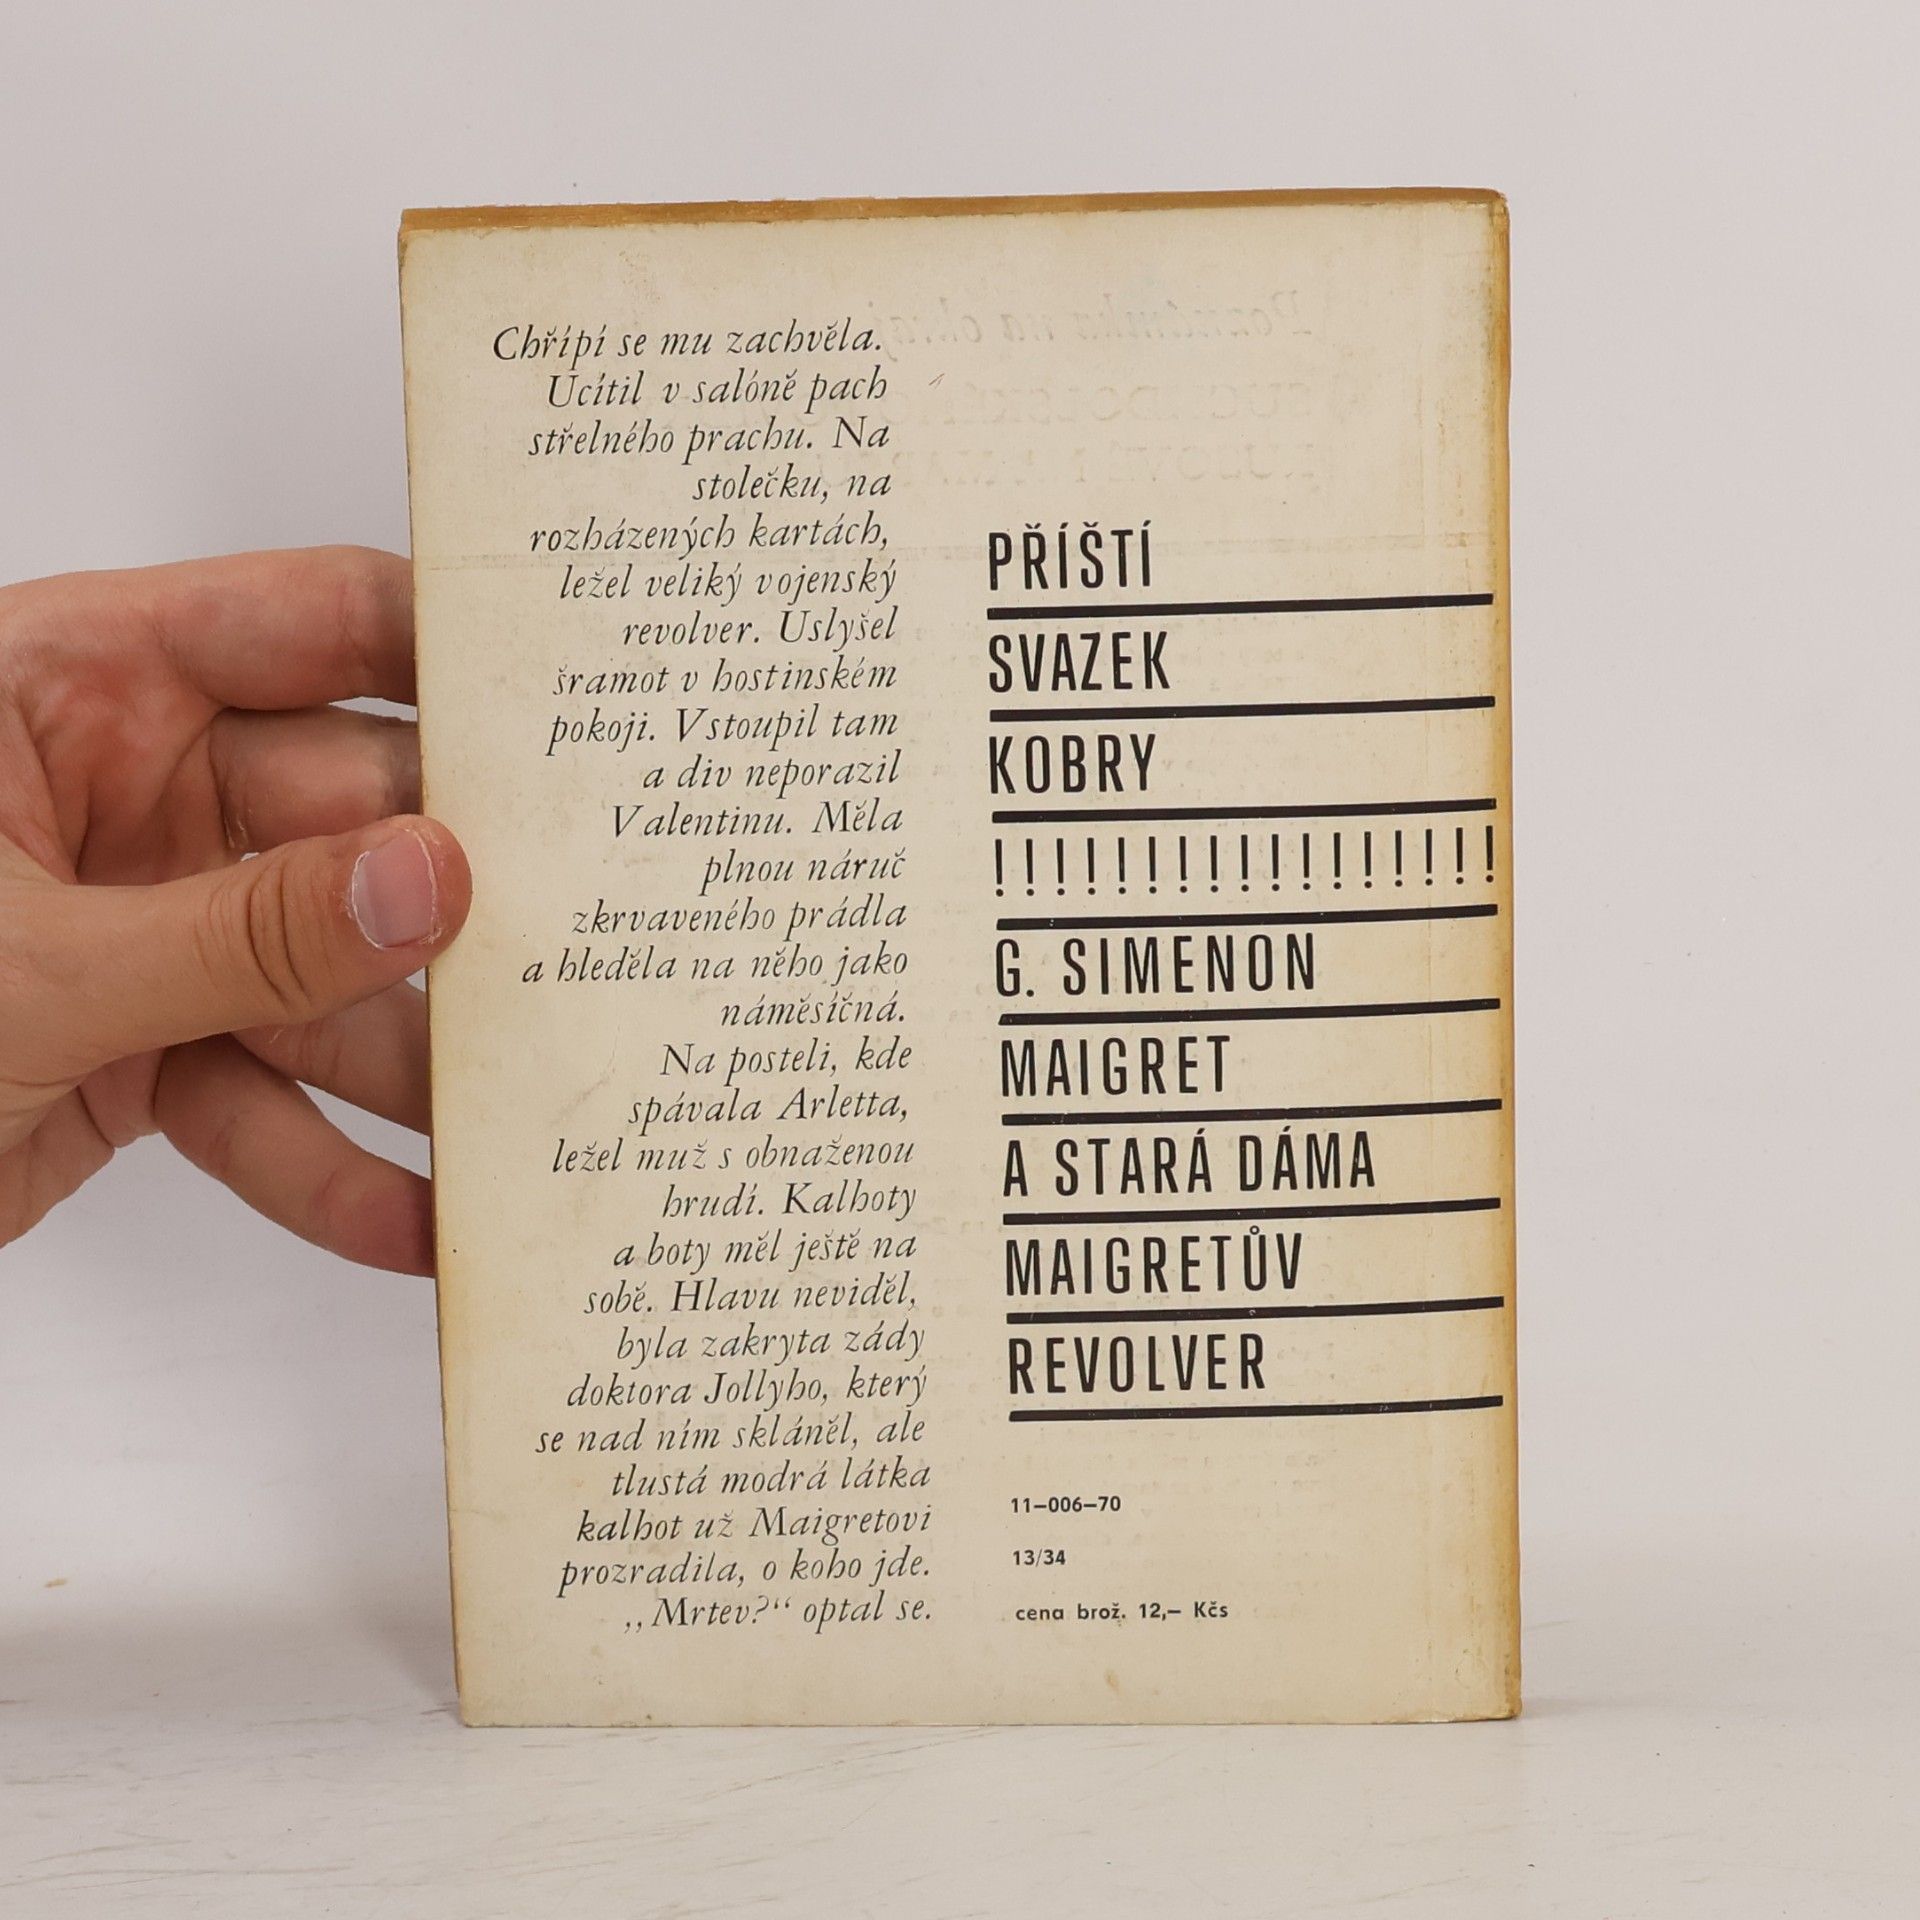 Chřípí se mu zachvěla.
Ucítil v salóně pach
střelného prachu. Na
stolečku, na
rozházených kartách,
ležel veliký vojenský
revolver. Uslyšel
šramot v hostinském
pokoji. Vstoupil tam
a div neporazil
Valentinu. Měla
plnou náruč
zkrvaveného prádla
a hleděla na něho jako
náměsíčná.
Na posteli, kde
spávala Arletta,
ležel muž s obnaženou
hrudí. Kalhoty
a boty měl ještě na
sobě. Hlavu neviděl,
byla zakryta zády
doktora Jollyho, který
se nad ním skláněl, ale
tlustá modrá látka
kalhot už Maigretovi
prozradila, o koho jde.
,,Mrtev?“ optal se.
PŘÍŠTÍ
SVAZEK
KOBRY
!!!!!!!!!!!!!!!!!
G. SIMENON
MAIGRET
A STARÁ DÁMA
MAIGRETŮV
REVOLVER
11–006–70
13/34
cena brož. 12,– Kčs